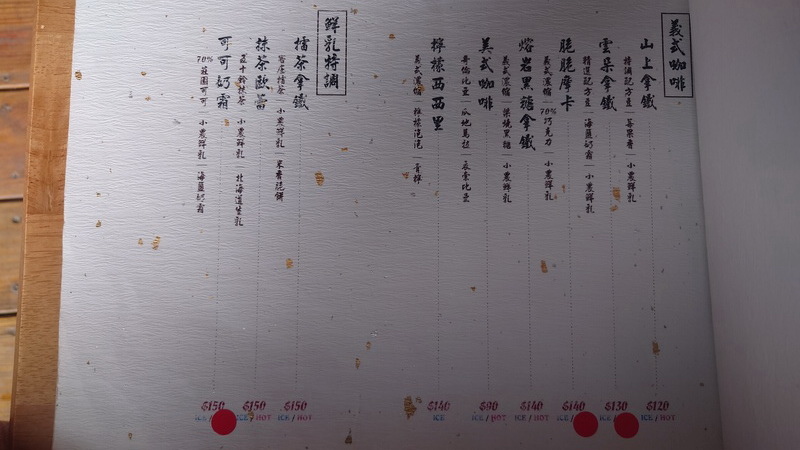 義式咖啡
山上拿鐵
特調配方豆｜苔果香｜小農鮮乳
$120
ICE / HOT
雲朵拿鐵
精選配方豆｜海鹽奶霜｜小農鮮乳
$130
ICE / HOT
脆脆摩卡
義式濃縮｜70%巧克力｜小農鮮乳
$140
ICE /
熔岩黑糖拿鐵
義式濃縮｜柴燒黑糖｜小農鮮乳
$140
ICE / HOT
美式咖啡
哥倫比亞｜瓜地馬拉｜衣索比亞
$90
ICE / HOT
檸檬西西里
義式濃縮｜檸檬泡泡｜青檸
$140
ICE
鮮乳特調
擂茶拿鐵
客庄擂茶｜小農鮮乳｜米香脆餅
$150
ICE / HOT
抹茶歐蕾
五十鈴抹茶｜小農鮮乳｜北海道生乳
$150
ICE / HOT
可可奶霜
70%莊園可可｜小農鮮乳｜海鹽奶霜
$150
ICE /